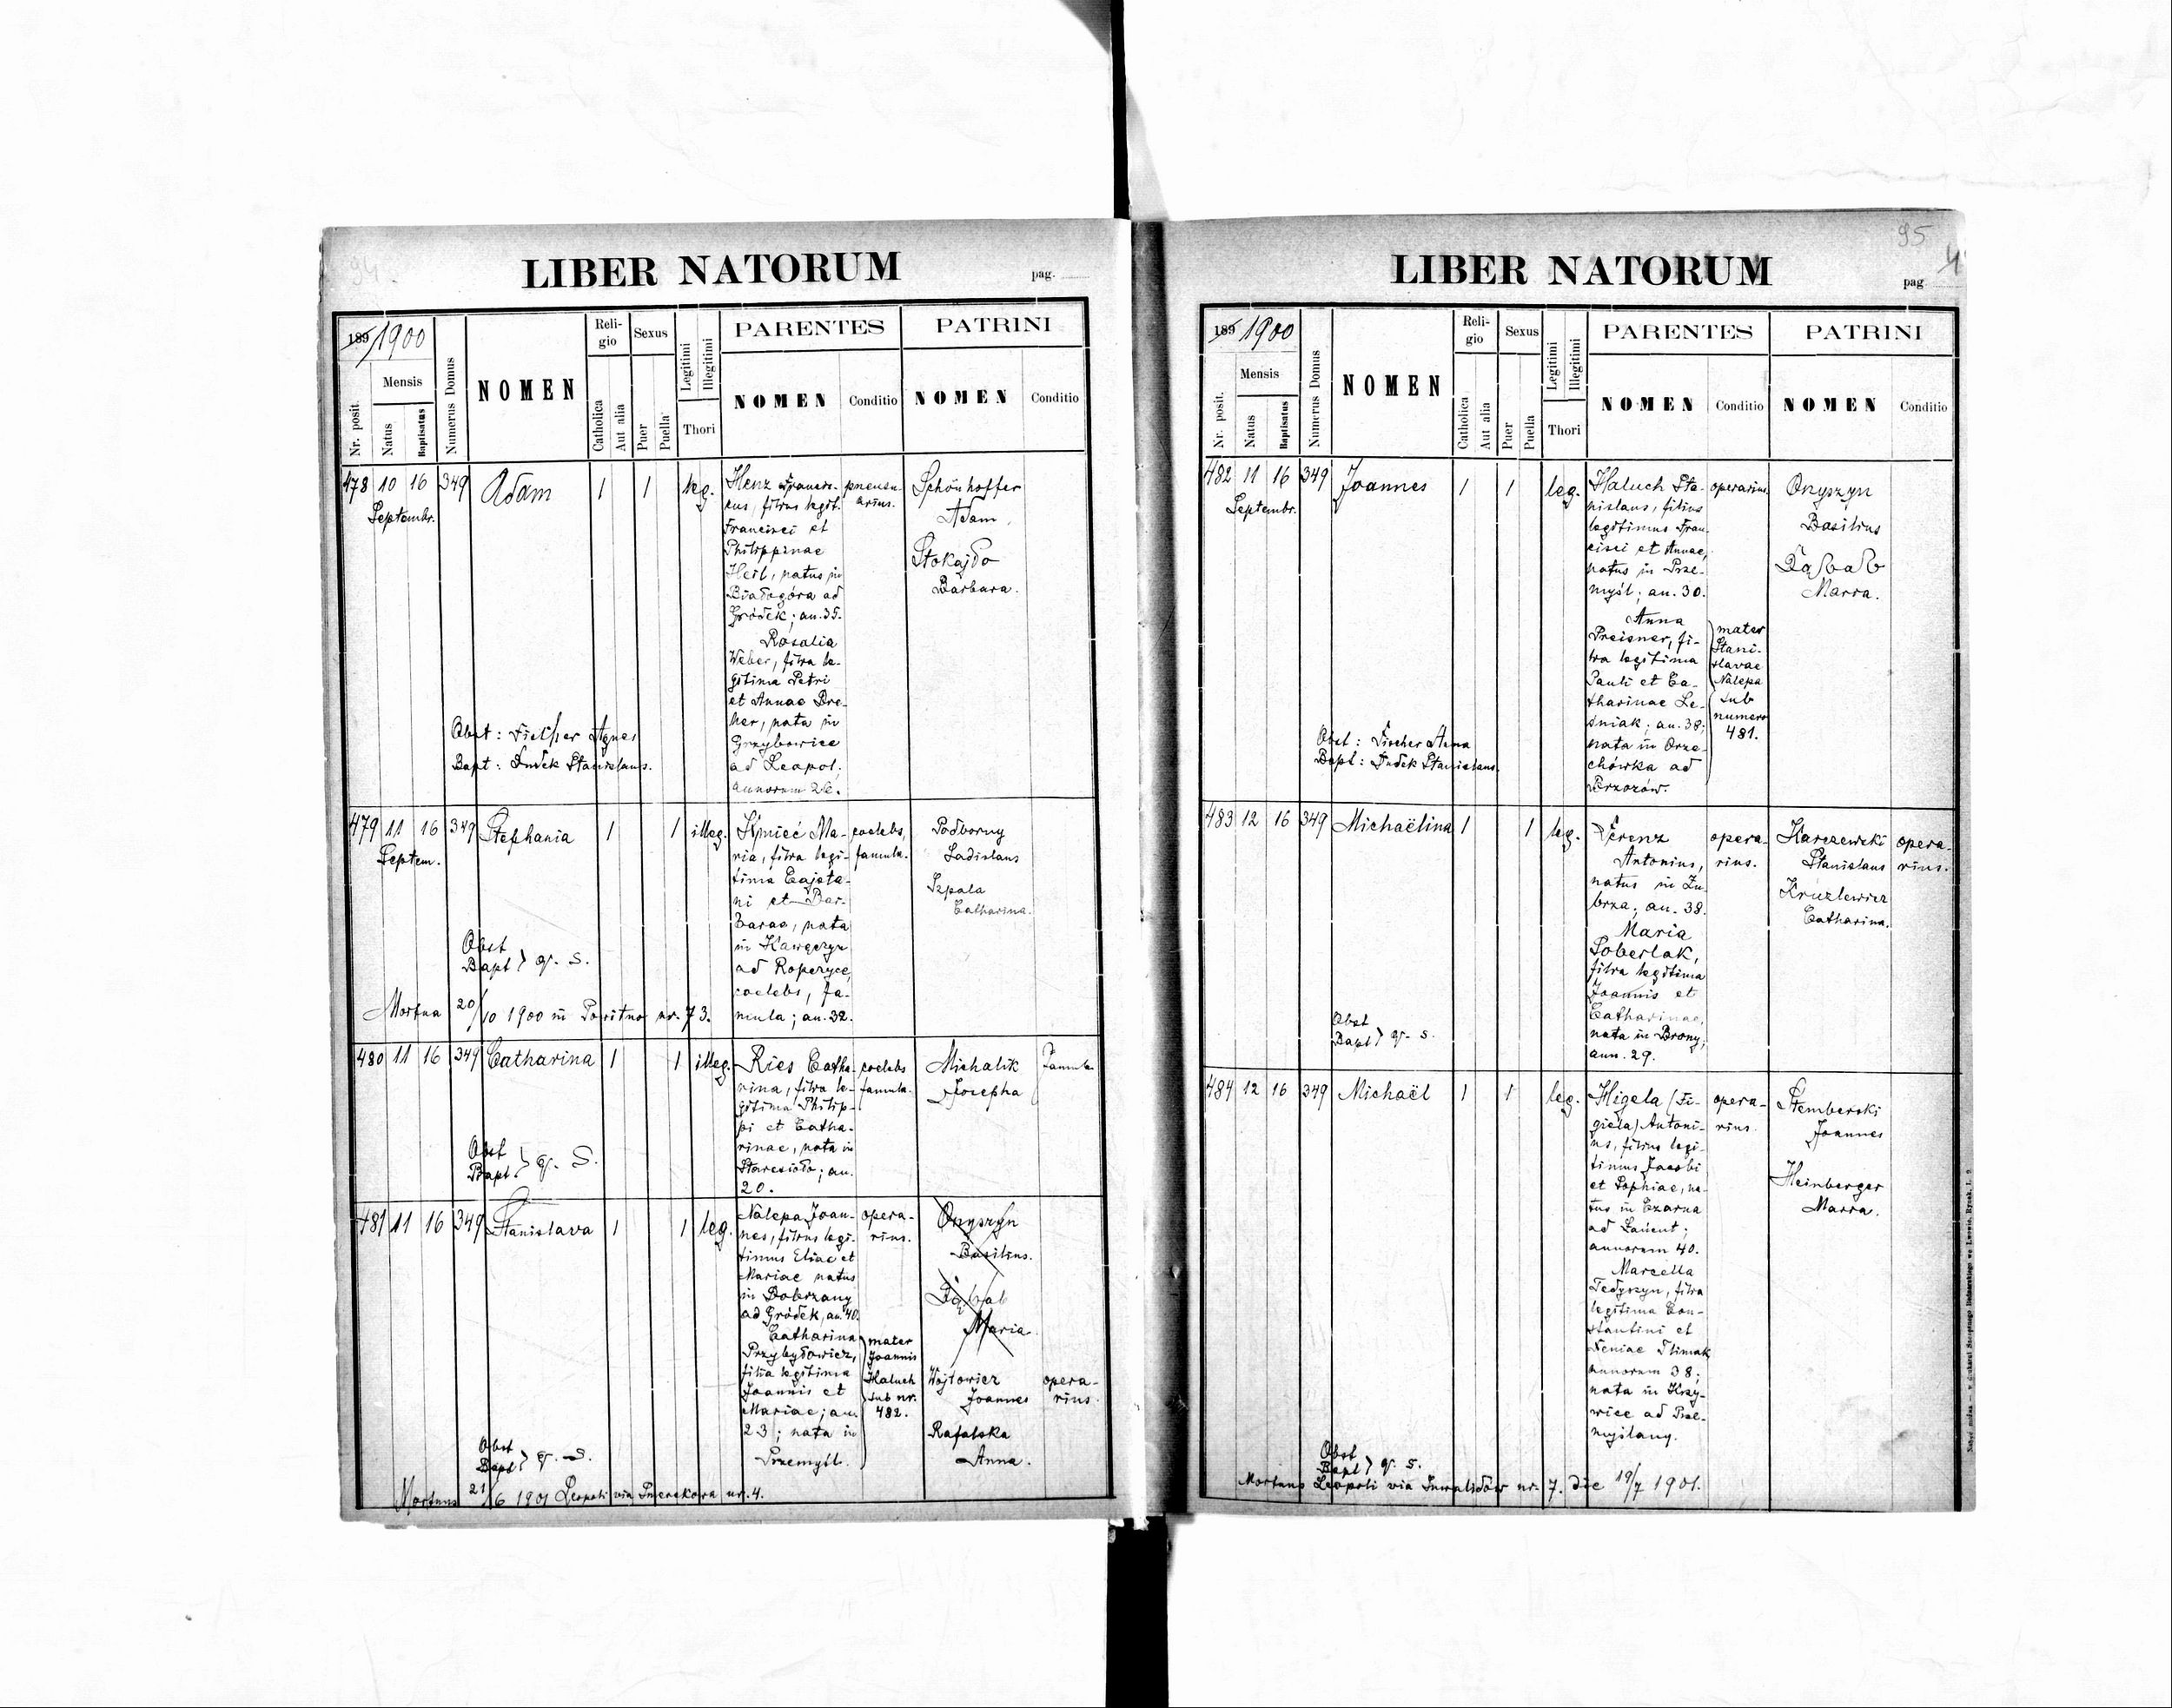 94.
LIBER NATORUM
pag.
189 1900
Nr. posit.
Mensis
Natus
Baptisatus
Numerus Domus
NOMEN
Reli-
gio
Catholica
Aut alia
Sexus
Puer
Puella
Legitimi
Illegitimi
Thori
PARENTES
NOMEN
Conditio
PATRINI
NOMEN
Conditio
478 10 16 349 Adam 1 1 leg.
Septembr.
Henz Francis-
cus, filius legit.
Francisci et
Philippinae
Heil, natus in
Białogóra ad
Gródek; an. 35.
Rosalia
Weber, filia le-
gitima Petri
et Annae Dre-
her, nata in
Grzybowice
ad Leopol.
annorum 26.
Schönhoffer
Adam.
Stokajło
Barbara.
Obst: Fischer Agnes
Bapt: Dudek Stanislaus.
479 11 16 349 Stephania 1 1 illeg.
Septem.
Kmieć Ma-
ria, filia legi-
tima Cajeta-
ni et Bar-
barae, nata
in Kawęczyn
ad Ropczyce,
coelebs, fa-
mula; an. 32.
coelebs,
famula.
Podborny
Ladislaus
Szpala
Catharina.
Obst
Bapt } q. s.
Mortua 20/10 1900 in nr. 73.
480 11 16 349 Catharina 1 1 illeg.
Ries Catha-
rina, filia le-
gitima Philip-
pi et Catha-
rinae, nata in
Staresioło; an.
20.
coelebs
famula.
Michalik
Josepha
famula
Obst
Bapt } q. s.
481 11 16 349 Stanislava 1 1 leg.
Nalepa Joan-
nes, filius legi-
timus Eliae et
Mariae natus
in Dobrzany
ad Gródek, an. 40.
Catharina
Przybyłowicz,
filia legitima
Joannis et
Mariae; an.
23; nata in
Przemyśl.
opera-
rius.
mater
Joannis
Haluch
sub nr.
482.
Onyszyn
Basilius.
Maria
Wójtowicz
Joannes
opera-
rius.
Rafalska
Anna.
Obst
Bapt } q. s.
Mortuus 21/6 1901 Leopoli via nr. 4.
95
LIBER NATORUM
pag
189 1900
Nr. posit.
Mensis
Natus
Baptisatus
Numerus Domus
NOMEN
Reli-
gio
Catholica
Aut alia
Sexus
Puer
Puella
Legitimi
Illegitimi
Thori
PARENTES
NOMEN
Conditio
PATRINI
NOMEN
Conditio
482 11 16 349 Joannes 1 1 leg.
Septembr.
Haluch Sta-
nislaus, filius
legitimus Fran-
cisci et Annae,
natus in Prze-
myśl; an. 30.
Anna
Preisner, fi-
lia legitima
Pauli et Ca-
tharinae Le-
śniak; an. 38;
nata in Orze-
chówka ad
Brzozów.
operarius.
mater
Stani-
slavae
Nalepa
sub
numero
481.
Onyszyn
Basilius
Maria.
Obst: Fischer Anna
Bapt: Dudek Stanislaus.
483 12 16 349 Michaëlina 1 1 leg.
Ferenz
Antonius,
natus in Zu-
brza; an. 38.
Maria
Soberlak,
filia legitima
Joannis et
Catharinae,
nata in Brony,
ann. 29.
opera-
rius.
Karczewski
Stanislaus
Kruzlewicz
Catharina.
opera-
rius.
Obst
Bapt } q. s.
484 12 16 349 Michaël 1 1 leg.
Higela (Fi-
giela) Antoni-
us, filius legi-
timus Jacobi
et Sophiae, na-
tus in Czarna
ad Łańcut;
annorum 40.
Marcella
Fedyszyn, filia
legitima Con-
stantini et
Feniae Tlimak
annorum 38;
nata in Krzy-
wice ad Prze-
myślany.
opera-
rius.
Stemberski
Joannes
Heinberger
Maria.
Obst
Bapt } q. s.
Mortuus Leopoli via Inwalidów nr. 7. die 19/7 1901.